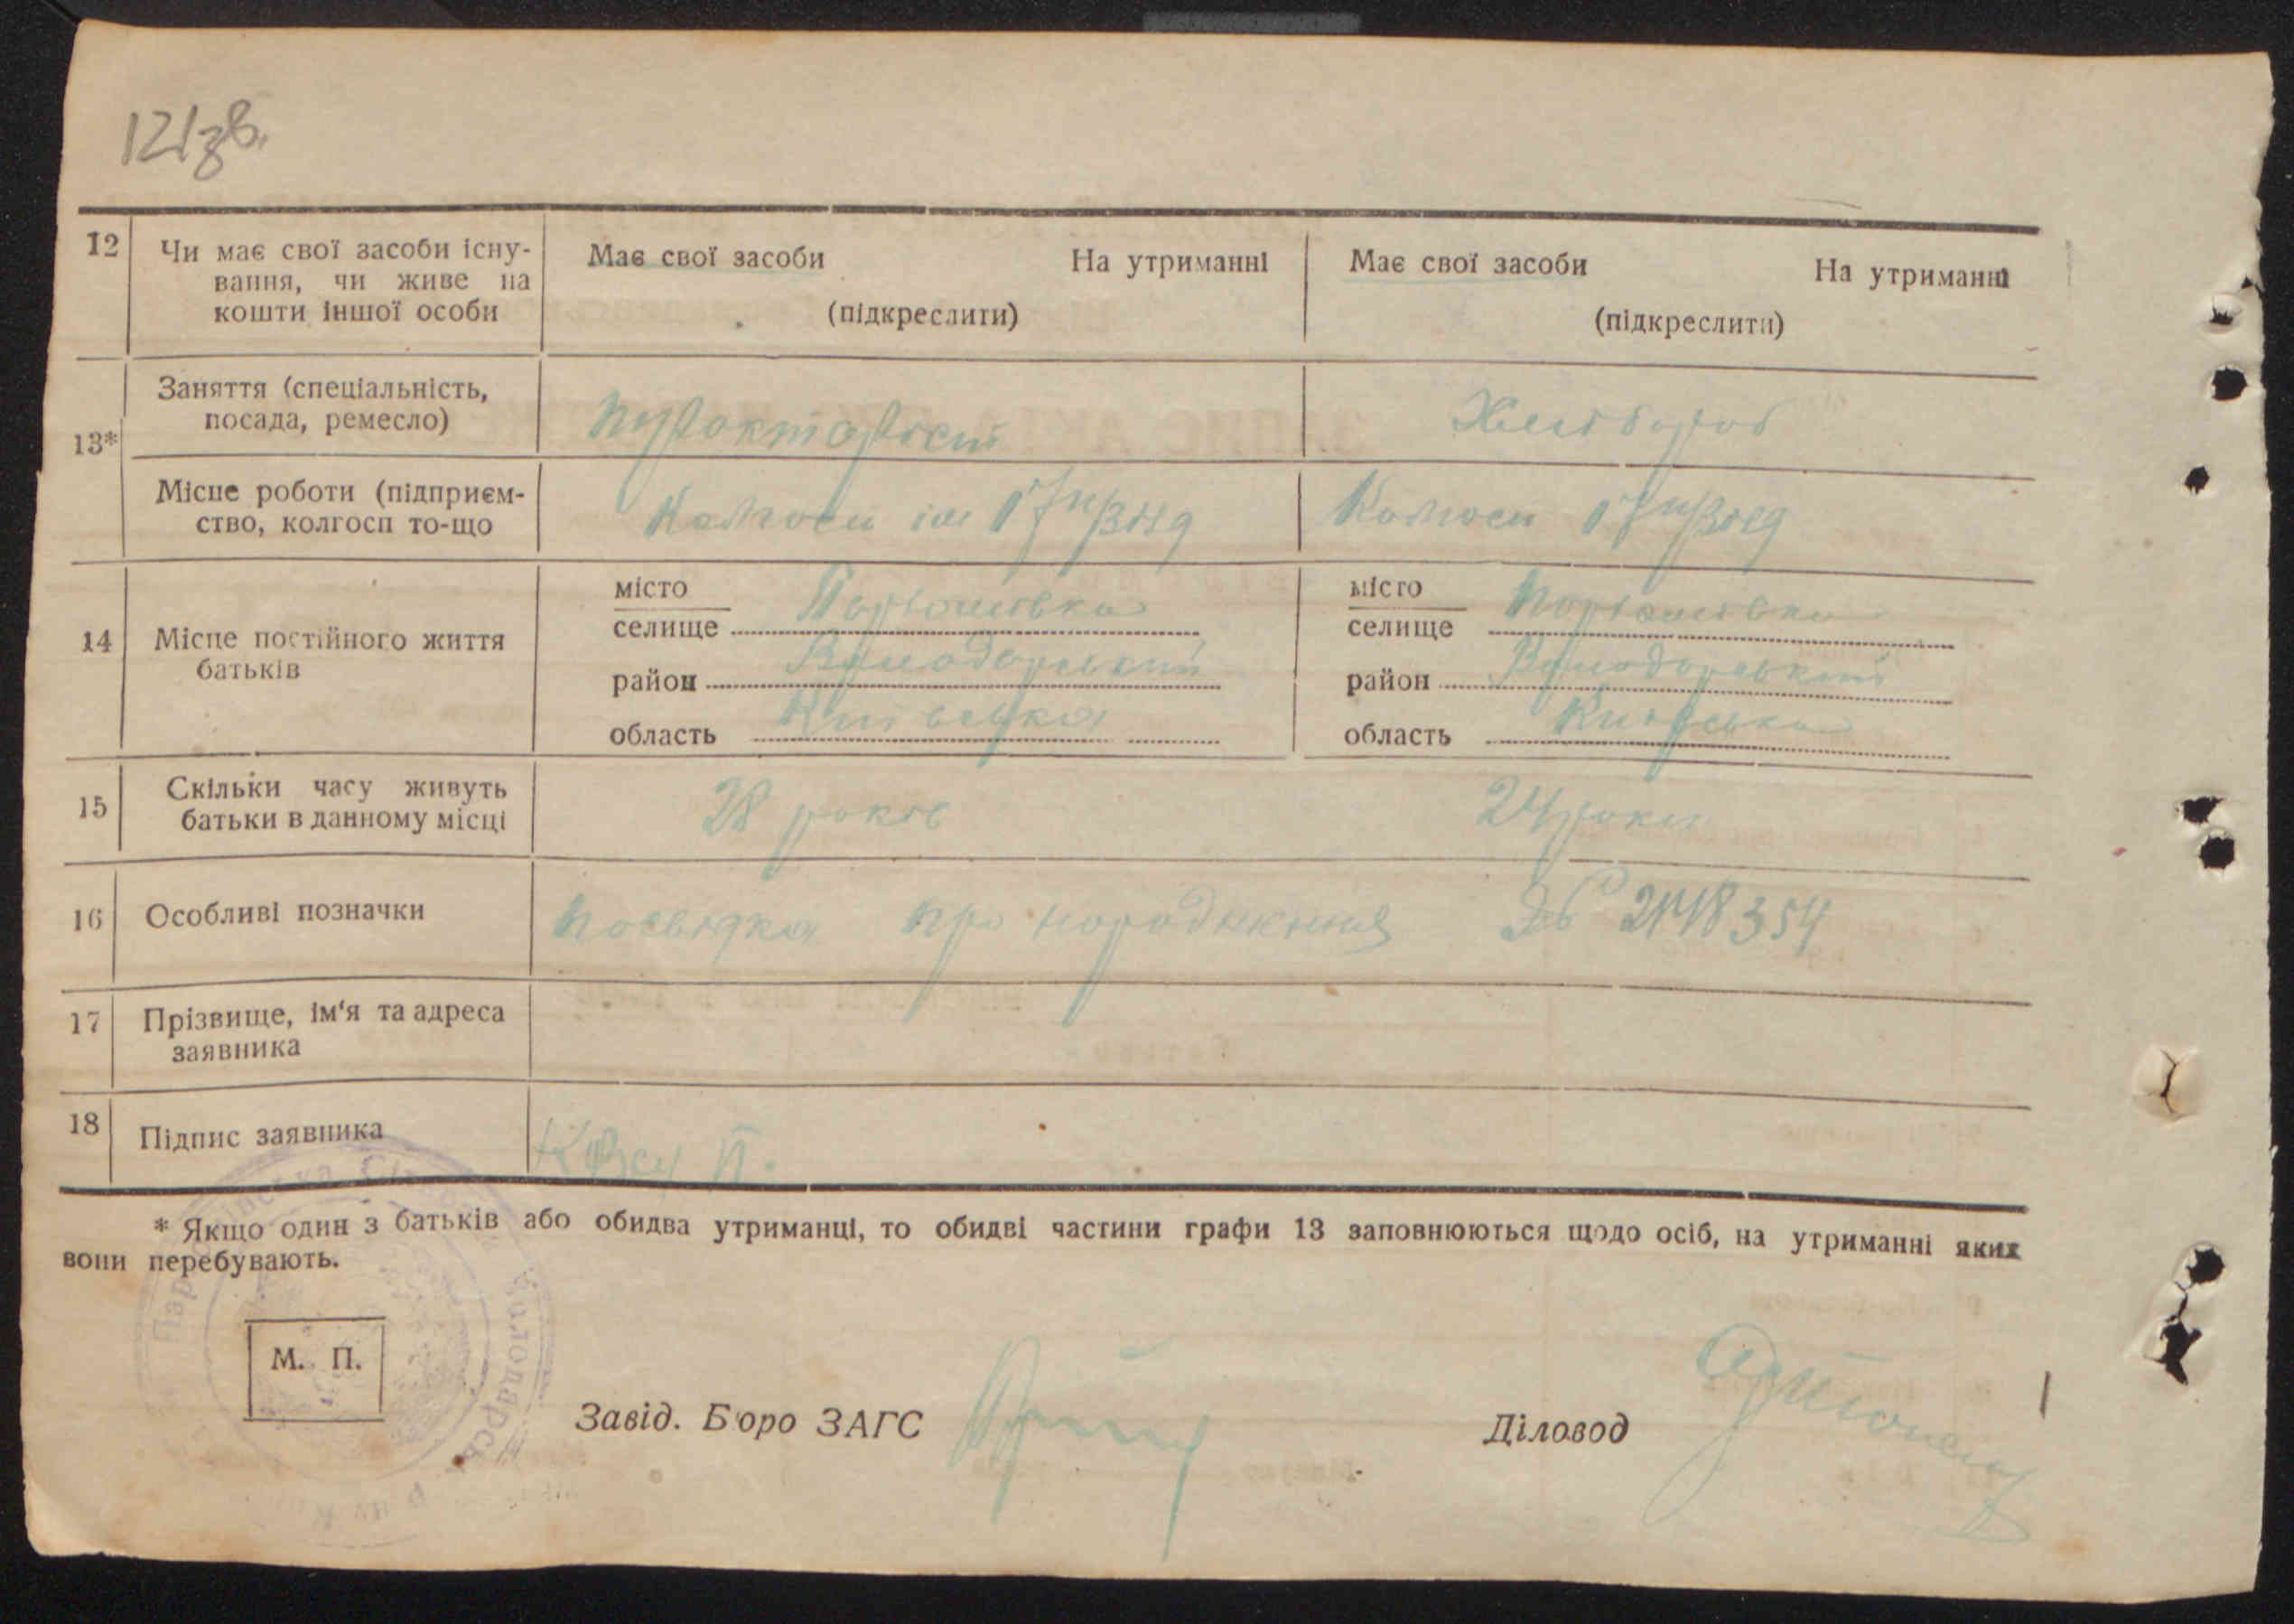 121зв.
12 Чи має свої засоби існу-
вання, чи живе на
кошти іншої особи
Має свої засоби На утриманні
(підкреслити)
Має свої засоби На утриманні
(підкреслити)
13*
Заняття (спеціальність,
посада, ремесло)
Хлібороб
Місце роботи (підприєм-
ство, колгосп то-що
Колгосп ім 17 п/зізд
Колгосп 17 п/зізд
14 Місце постійного життя
батьків
місто
селище
район Володарський
область Київська
місто
селище
район Володарський
область Київська
15 Скільки часу живуть
батьки в данному місці
28 років 24 роки
16 Особливі позначки
посвідка про народження
17 Прізвище, ім'я та адреса
заявника
18 Підпис заявника
* Якщо один з батьків або обидва утриманці, то обидві частини графи 13 заповнюються щодо осіб, на утриманні яких
вони перебувають.
М. П.
Завід. Бюро ЗАГС
Діловод